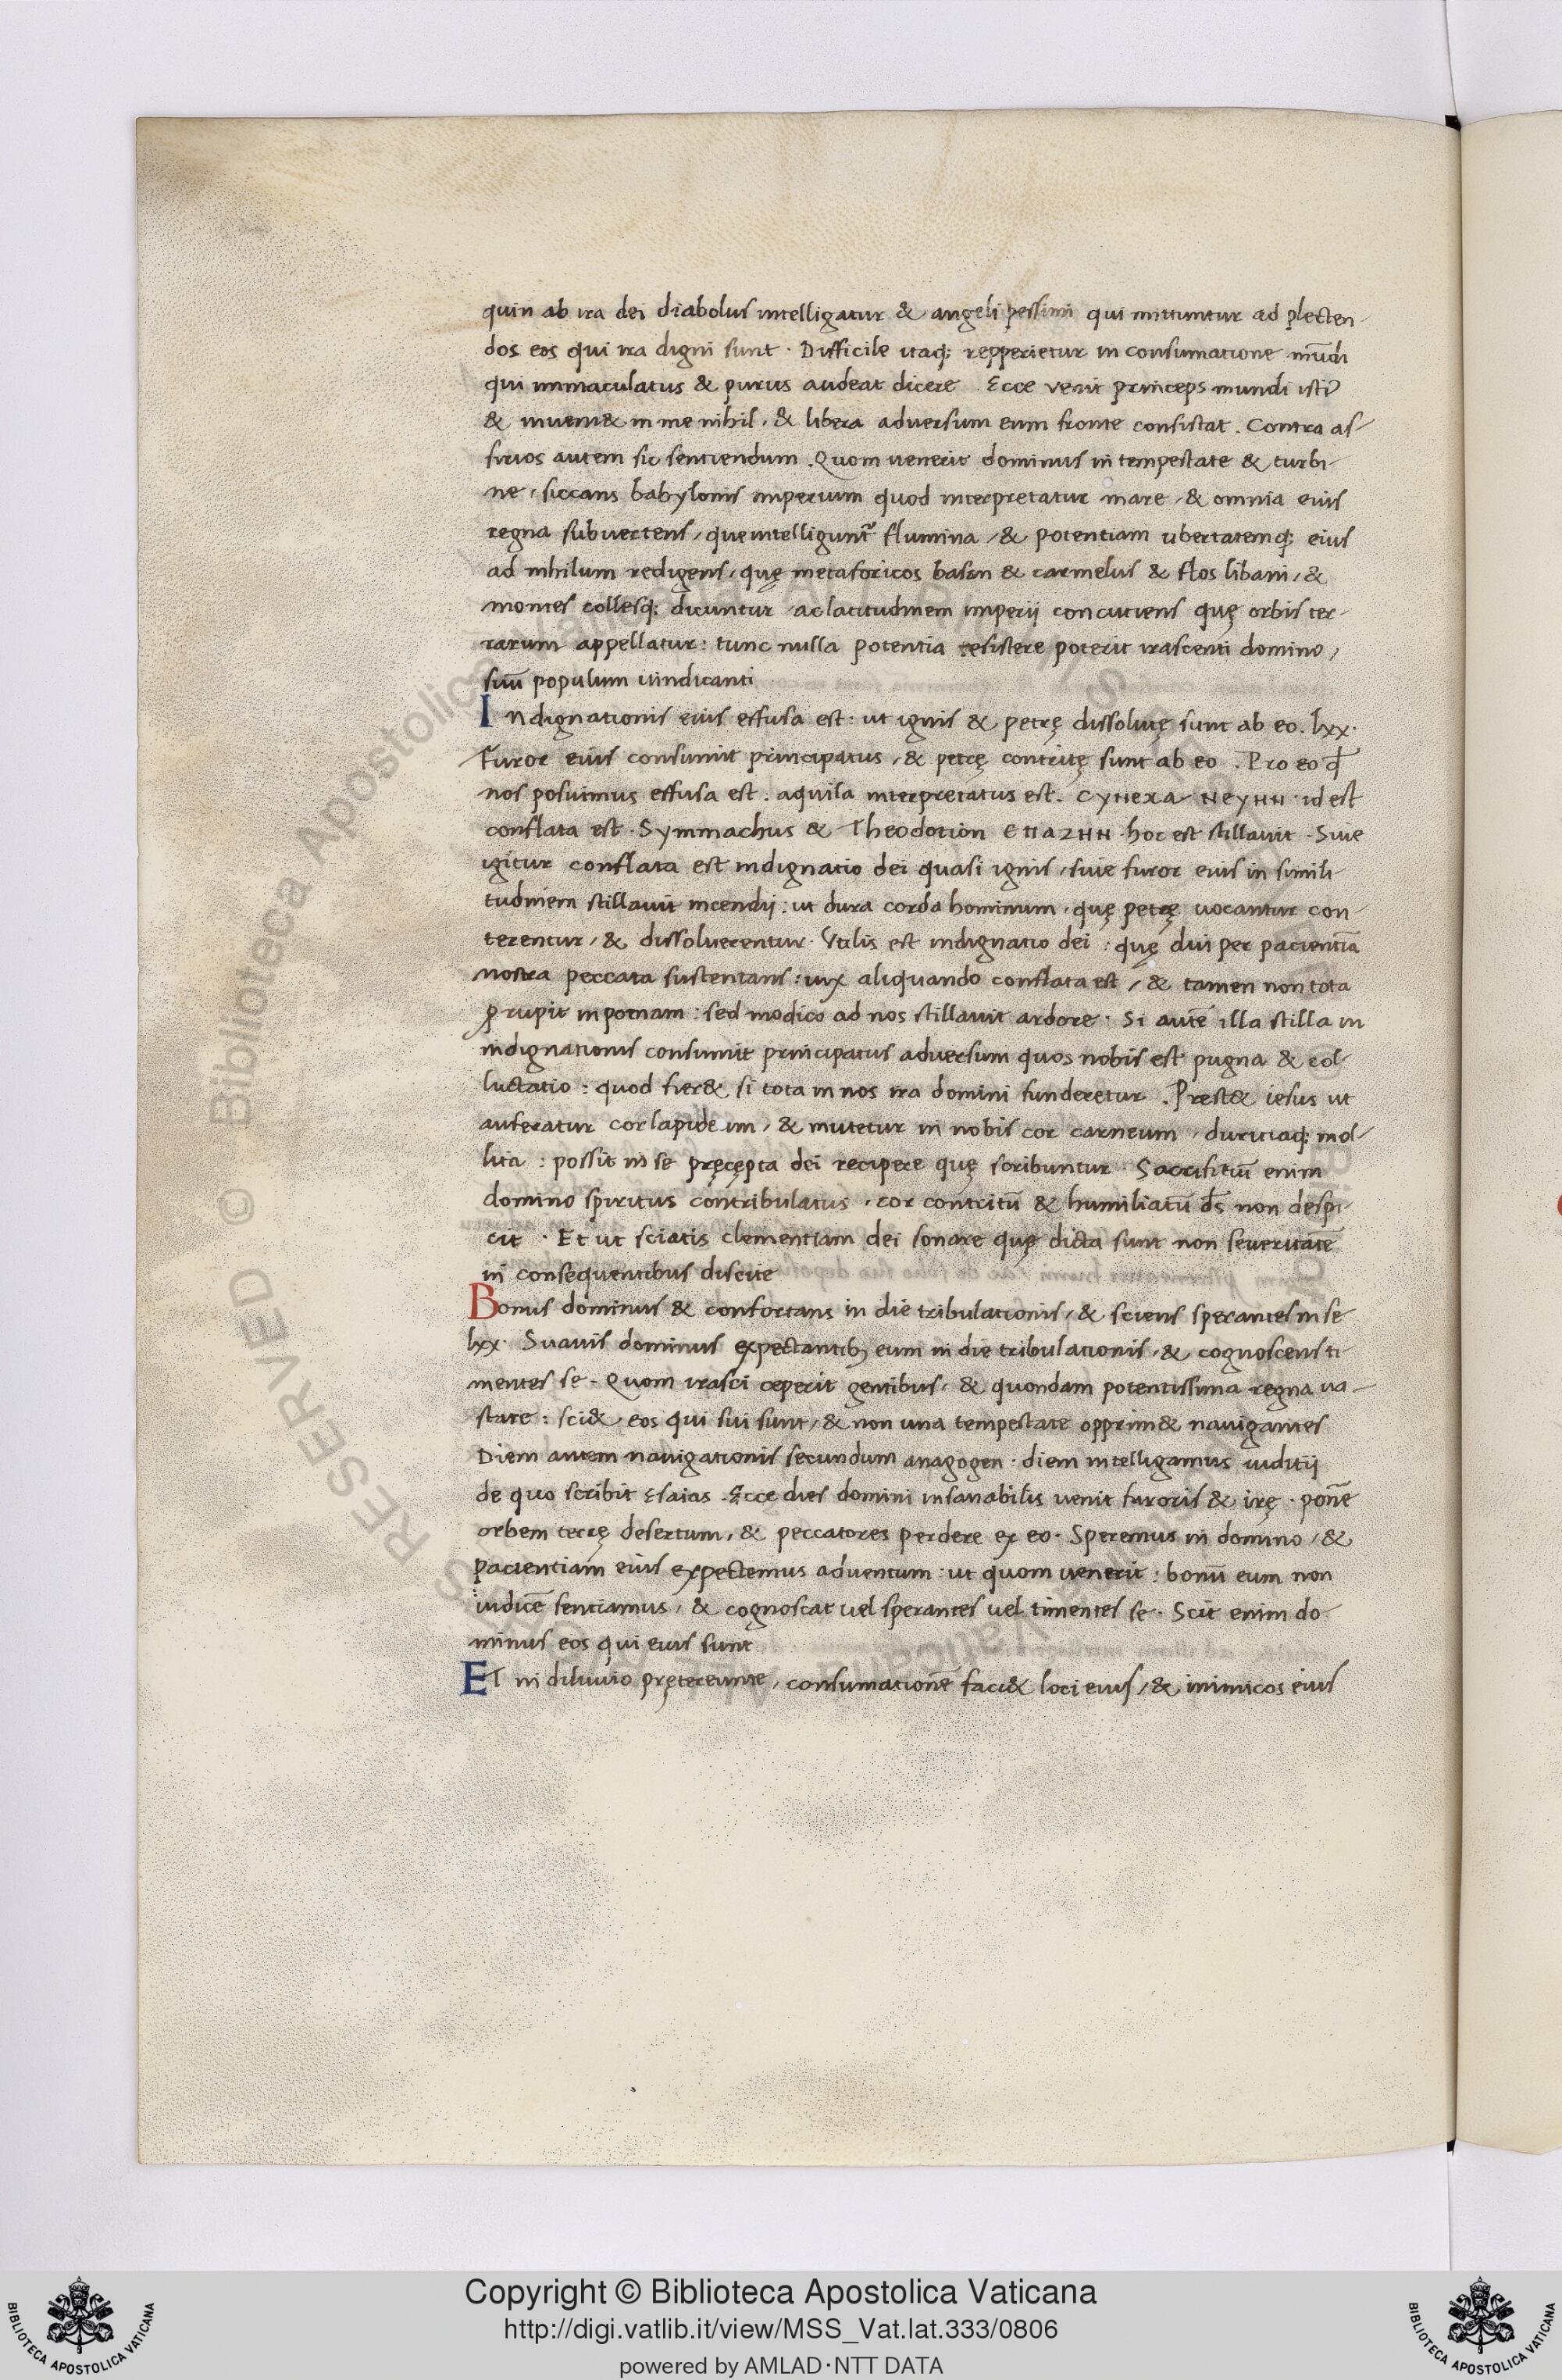 quin ab ira dei diabolus intelligatur & angeli pessimi qui mittuntur ad plecten-
dos eos qui ira digni sunt. Difficile itaq; repperietur in consumatione mūdi
qui immaculatus & purus audeat dicere. Ecce venit princeps mundi isti᾽
& inueni& in me nihil, & libera adversum eum fronte consistat. Contra as-
sirios autem sic sentiendum. Quom uenerit dominus in tempestate & turbi-
ne, siccans babylonis imperium quod interpretatur mare, & omnia eius
regna subvertens, que intelligunt᷑ flumina, & potentiam ubertatemq; eius
ad nihilum redigens, quę metaforicos basan & carmelus & flos libani, &
montes collesq; dicuntur, ac latitudinem imperii concutiens quę orbis ter-
rarum appellatur: tunc nulla potentia resistere poterit irascenti domino,
suū populum uindicanti
Indignationis eius effusa est. ut ignis & petrę dissolutę sunt ab eo. lxx.
Furor eius consumit principatus, & petrę contritę sunt ab eo. Pro eo qđ
nos posuimus effusa est. aquila interpretatus est. CYNEXA NEYHN. id est
conflata est. Symmachus & Theodotion EΠAZHN. hoc est stillauit. Siue
igitur conflata est indignatio dei quasi ignis, siue furor eius in simili-
tudinem stillauit incendii: ut dura corda hominum, quę petrę uocantur con-
terentur, & dissoluerentur. Utilis est indignatio dei: quę diu per pacientiā
nostra peccata sustentans: uix aliquando conflata est, & tamen non tota
ꝓrupit in poenam: sed modico ad nos stillauit ardore. Si autē illa stilla in
indignationis consumit principatus adversum quos nobis est pugna & col-
luctatio: quod fier& si tota in nos ira domini funderetur. Prest& iesus ut
auferatur cor lapideum, & mutetur in nobis cor carneum, duritiaq; mol-
lita: possit in se pręcępta dei recipere quę scribuntur. Sacrifitiū enim
domino spiritus contribulatus, cor contritū & humiliatū ds̄ non despi-
cit. Et ut sciatis clementiam dei sonare quę dicta sunt non seueritatē
in consequentibus discite
Bonus dominus & confortans in die tribulationis, & sciens sperantes in se
lxx. Suauis dominus expectantib; eum in die tribulationis, & cognoscens ti-
mentes se. Quom irasci ceperit gentibus, & quondam potentissima regna ua-
stare: sci& eos qui sui sunt, & non una tempestate opprim& nauigantes
Diem autem nauigationis secundum anagogen: diem intelligamus iuditii
de quo scribit ęsaias. Ecce dies domini insanabilis uenit furoris & irę. ponē
orbem terrę desertum, & peccatores perdere ex eo. Speremus in domino, &
pacientiam eius expectemus adventum: ut quom uenerit: bonū eum non
iudicē sentiamus, & cognoscat uel sperantes uel timentes se. Scit enim do-
minus eos qui eius sunt
ET in diluuio prętereunte, consumationē faci& loci eius, & inimicos eius
Copyright © Biblioteca Apostolica Vaticana
http://digi.vatlib.it/view/MSS_Vat.lat.333/0806
powered by AMLAD·NTT DATA
BIBLIOTECA APOSTOLICA VATICANA
BIBLIOTECA APOSTOLICA VATICANA